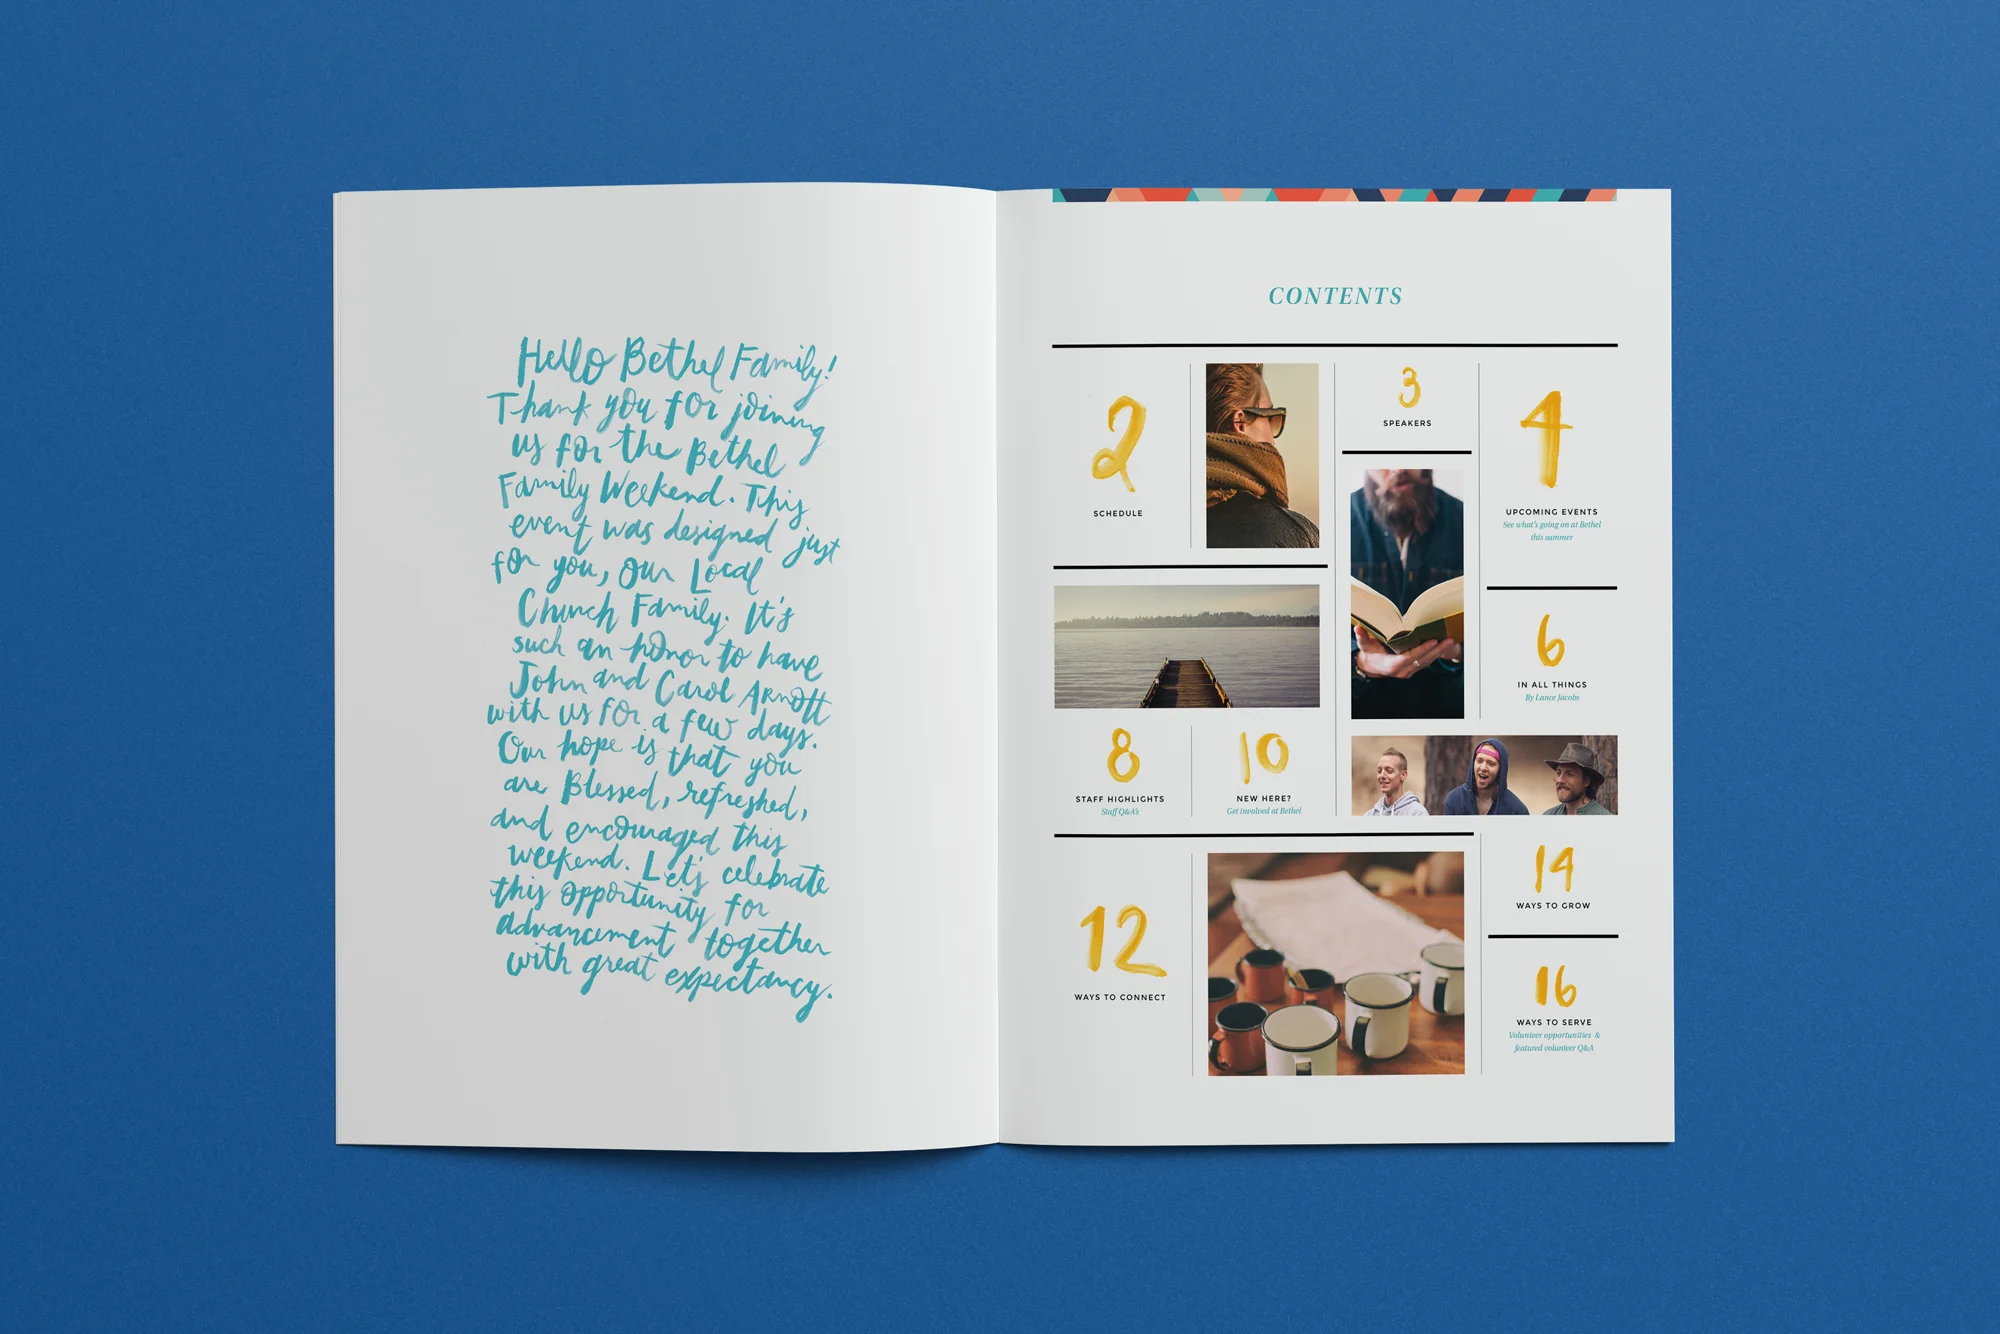 Hello Bethel Family!
Thank you for joining
us for the Bethel
Family Weekend. This
event was designed just
for you, our Local
Church Family. It's
such an honor to have
John and Carol Arnott
with us for a few days.
Our hope is that you
are Blessed, refreshed,
and encouraged this
weekend. Let's celebrate
this opportunity for
advancement together
with great expectancy.
CONTENTS
2
SCHEDULE
3
SPEAKERS
4
UPCOMING EVENTS
See what's going on at Bethel
this summer
6
IN ALL THINGS
By Lance Jacobs
8
STAFF HIGHLIGHTS
Staff Q&A's
10
NEW HERE?
Get involved at Bethel
12
WAYS TO CONNECT
14
WAYS TO GROW
16
WAYS TO SERVE
Volunteer opportunities &
featured volunteer Q&A